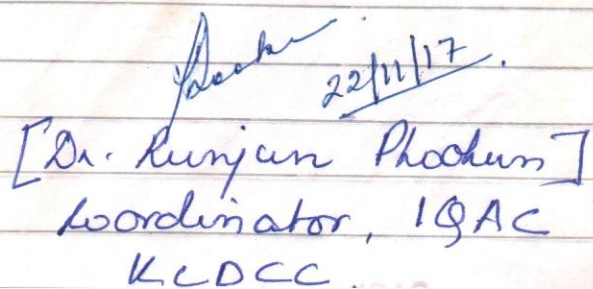 22/11/17.
[Dr. Runjun Phookun]
Coordinator, IQAC
KCDCC